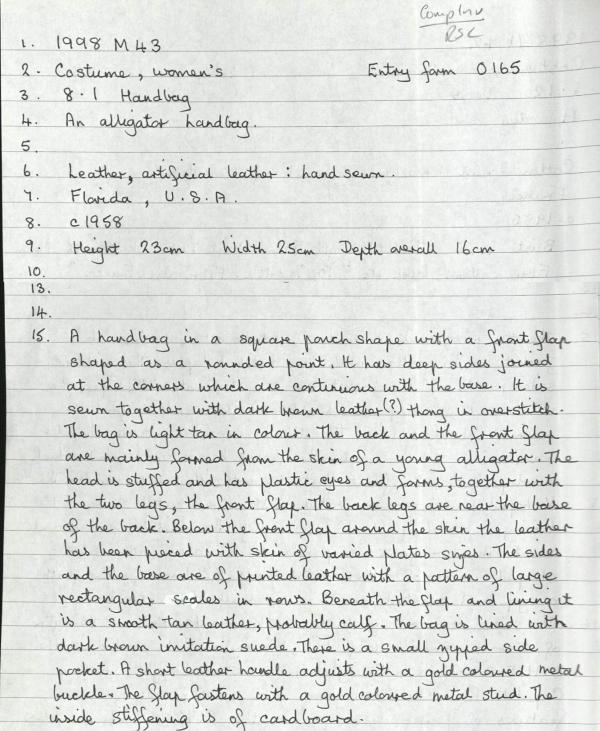 Comp Inv
RSC
1. 1998 M 43
2. Costume, women's Entry form 0165
3. 8.1 Handbag
4. An alligator handbag.
5.
6. Leather, artificial leather : hand sewn.
7. Florida, U.S.A.
8. c1958
9. Height 23cm Width 25cm Depth overall 16cm
10.
13.
14.
15. A handbag in a square pouch shape with a front flap
shaped as a rounded point. It has deep sides joined
at the corners which are continuous with the base. It is
sewn together with dark brown leather(?) thong in overstitch.
The bag is light tan in colour. The back and the front flap
are mainly formed from the skin of a young alligator. The
head is stuffed and has plastic eyes and forms, together with
the two legs, the front flap. The back legs are near the base
of the back. Below the front flap around the skin the leather
has been pieced with skin of varied plates sizes. The sides
and the base are of printed leather with a pattern of large
rectangular scales in rows. Beneath the flap and lining it
is a smooth tan leather, probably calf. The bag is lined with
dark brown imitation suede. There is a small zipped side
pocket. A short leather handle adjusts with a gold coloured metal
buckle. The flap fastens with a gold coloured metal stud. The
inside stiffening is of cardboard.